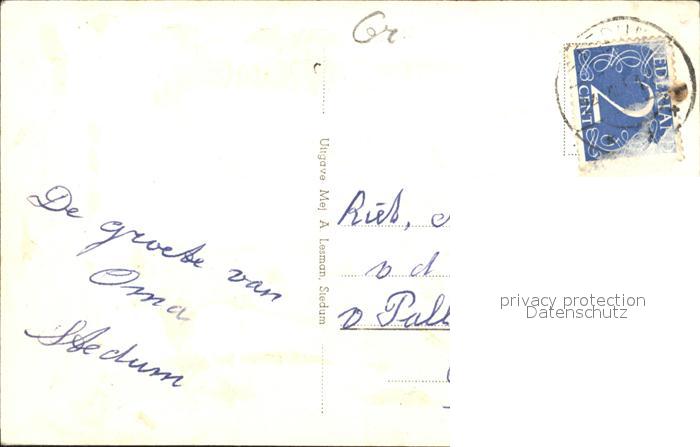 Gr.
NEDERLAND
2
CENT
De groete van
Oma
Stedum
Uitgave Mej A Lesman, Stedum
Riet,
v d
v Pall
privacy protection
Datenschutz